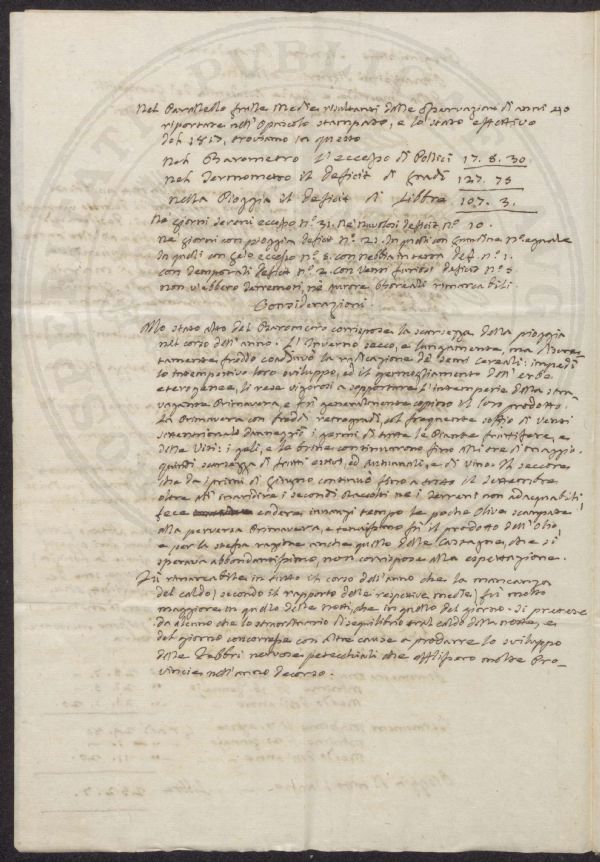 Nel Parallelo fralle Medie risultanti dalle Osservazioni di anni 40
riportate nell'Opuscolo stampato, e lo stato effettivo
del 1817, troviamo in questo
Nel Barometro l'eccesso di Pollici 17. 8. 30
nel Termometro il deficit di gradi 127. 75
nella Pioggia il deficit di Libbre 107. 3.
Ne giorni sereni eccesso N.º 31. Ne Nuvolosi deficit N.º 10.
Ne giorni con pioggia deficit N.º 21. In quelli con grandine N.º eguale
In quelli con gelo eccesso N.º 8. con Nebbia in terra def. N.º 1.
con temporali deficit N.º 2. con venti furiosi deficit N.º 5
non v'ebbero terremoti, nè aurore boreali rimarcabili.
Considerazioni.
Allo stato alto del Barometro corrispose la scarsezza della pioggia
nel corso dell'anno. L'Inverno secco, e lungamente, ma
tamente freddo la de' semi cereali: impedì
lo intempestivo loro sviluppo, ed il germogliamento dell'erbe
eterogenee, li rese vigorosi a sopportare l'intemperie della stra
vagante Primavera, e fu generalmente copioso il loro prodotto.
La Primavera con freddi retrogradi, col frequente soffio di venti
settentrionali danneggiò i germi di tutte le Piante fruttifere, e
delle Viti: i geli, e le brine continuarono fino alli di Maggio.
quindi scarsezza di frutti estivi, ed autunnali, e di vino. Il seccore
che da i primi di Giugno continuò fino a tutto il Settembre
oltre all' i secondi Raccolti ne i terreni non adaquabili
fece cadere innanzi tempo le poche Olive scampate
alla perversa Primavera, e tenuissimo fu il prodotto dell'Olio,
e per la stessa ragione anche quello delle Castagne, che si
sperava abbondantissimo, non corrispose alla espettazione.
Fù rimarcabile in tutto il corso dell'anno che la mancanza
del caldo, secondo il rapporto delle respettive medie, fu molto
maggiore in quello delle notti, che in quello del giorno. Si pretese
da alcuno che lo straordinario disequilibrio tral caldo della notte, e
del giorno concorresse con altre cause a produrre lo sviluppo
delle Febbri nervose petecchiali che afflissero molte Pro-
vincie nell'anno decorso.